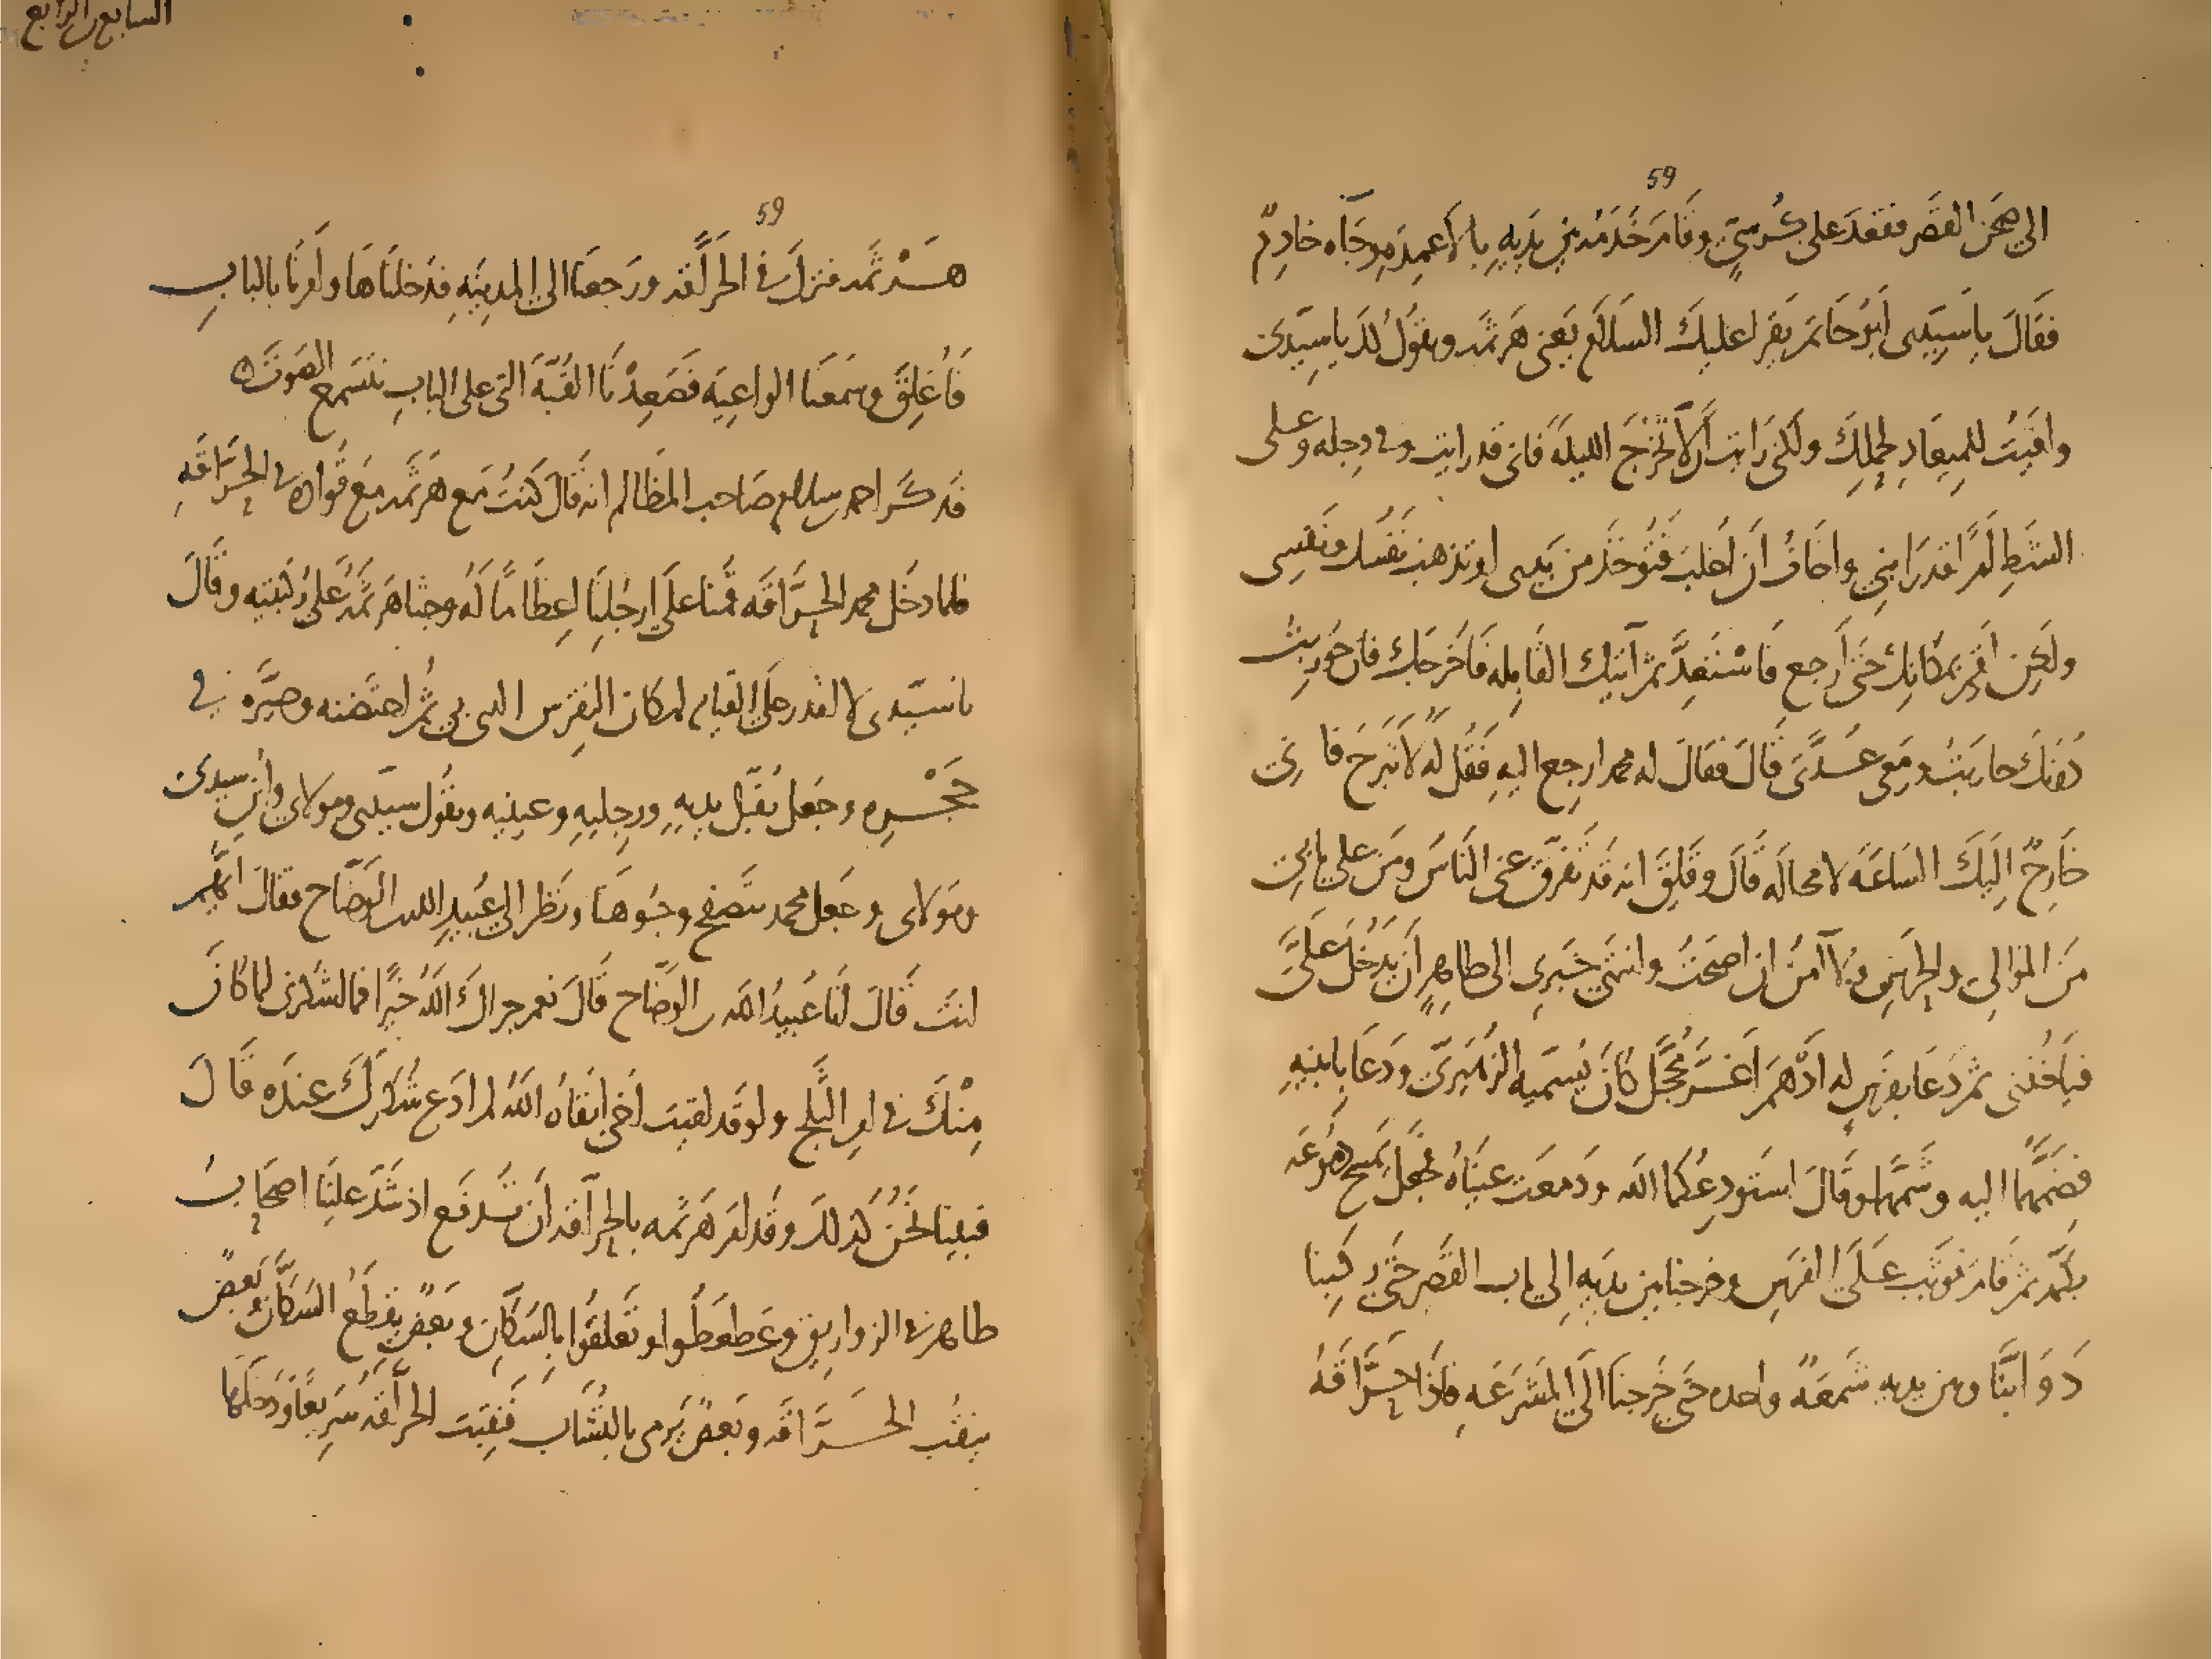 59
الى صحن القصر فقعد على كُرسيٍّ وقام خدمه بين يديه بالاعمده وجاه خادم
فقال ياسيدى ابو حاتم يقرا عليك السلام يعنى هرثمه ويقول لك ياسيدى
وافيت للميعاد لحملك ولكنى رايت الّا تخرج الليلة فانى قد رايت فى دجله وعلى
الشط امرا قد رابنى واخاف ان اغلب فتؤخذ من يدى او تذهب نفسك ونفسى
ولكن اقم بمكانك حتى أرجع فاستعدّ ثم آتيك القابله فاخرجك فان حُوربت
دُونك حاربت ومعى عدّتى قال فقال له محمد ارجع اليه فقل له لا تبرح فانى
خارجٌ اليك الساعة لا محاله قال وقلق انه قد تفرق عنى الناس ومن على بابى
من الموالى والحرس ولا آمن ان اصبحت وانتهى خبرى الى طاهرٍ ان يدخل علىّ
فياخذنى ثم دعا بفرس له ادهم اغرّ محجّل كان يسميه الزهيرىّ ودعا بابنيه
فضمهما اليه وشمهما وقال استودعكما الله ودمعت عيناه فجعل يمسح دموعه
بكمه ثم قام فوثب على الفرس وخرجنا بين يديه الى باب القصر حتى ركبنا
دوابنا وبين يديه شمعة واحده حتى خرجنا الى المشرعه فاذا حرّاقة
السابع الرابع
59
هرثمه فنزل فى الحراقه ورجعنا الى المدينه فدخلناها وامرنا بالباب
فأُغلق وسمعنا الواعيه فصعدنا القبّة التى على الباب نتسمع الصوت ه
فذكر احمد بن سلام صاحب المظالم انه قال كنت مع هرثمه مع قواده فى الحرّاقه
فلما دخل محمد الحرّاقه قمنا على ارجلنا اعظاما له وجثا هرثمه على ركبتيه وقال
ياسيّدى لا اقدر على القيام لمكان النقرس الذى بى ثم احتضنه وصيّره فى
حجره وجعل يقبّل يديه ورجليه وعينيه ويقول سيدى ومولاى وابن سيدى
ومولاى وجعل محمد يتصفح وجوهنا ونظر الى عبيد الله بن الوضّاح فقال ايهم
انت قال انا عبيد الله بن الوضّاح قال نعم جزاك الله خيرًا فما اشكرنى لما كان
منك فى امر الثلج ولو قد لقيت اخى ابقاه الله لم ادع شكرك عنده قال
فبينا نحن كذلك وقد امر هرثمه بالحراقه أن تدفع اذ شدّ علينا اصحاب
طاهر فى الزواريق وعطعطُوا وتعلقوا بالسكّان وبعضٌ يقطع السكّان وبعضٌ
ينقب الحرّاقه وبعضٌ يرمى بالنشاب فنقبت الحرّاقه سريعًا ودخلها